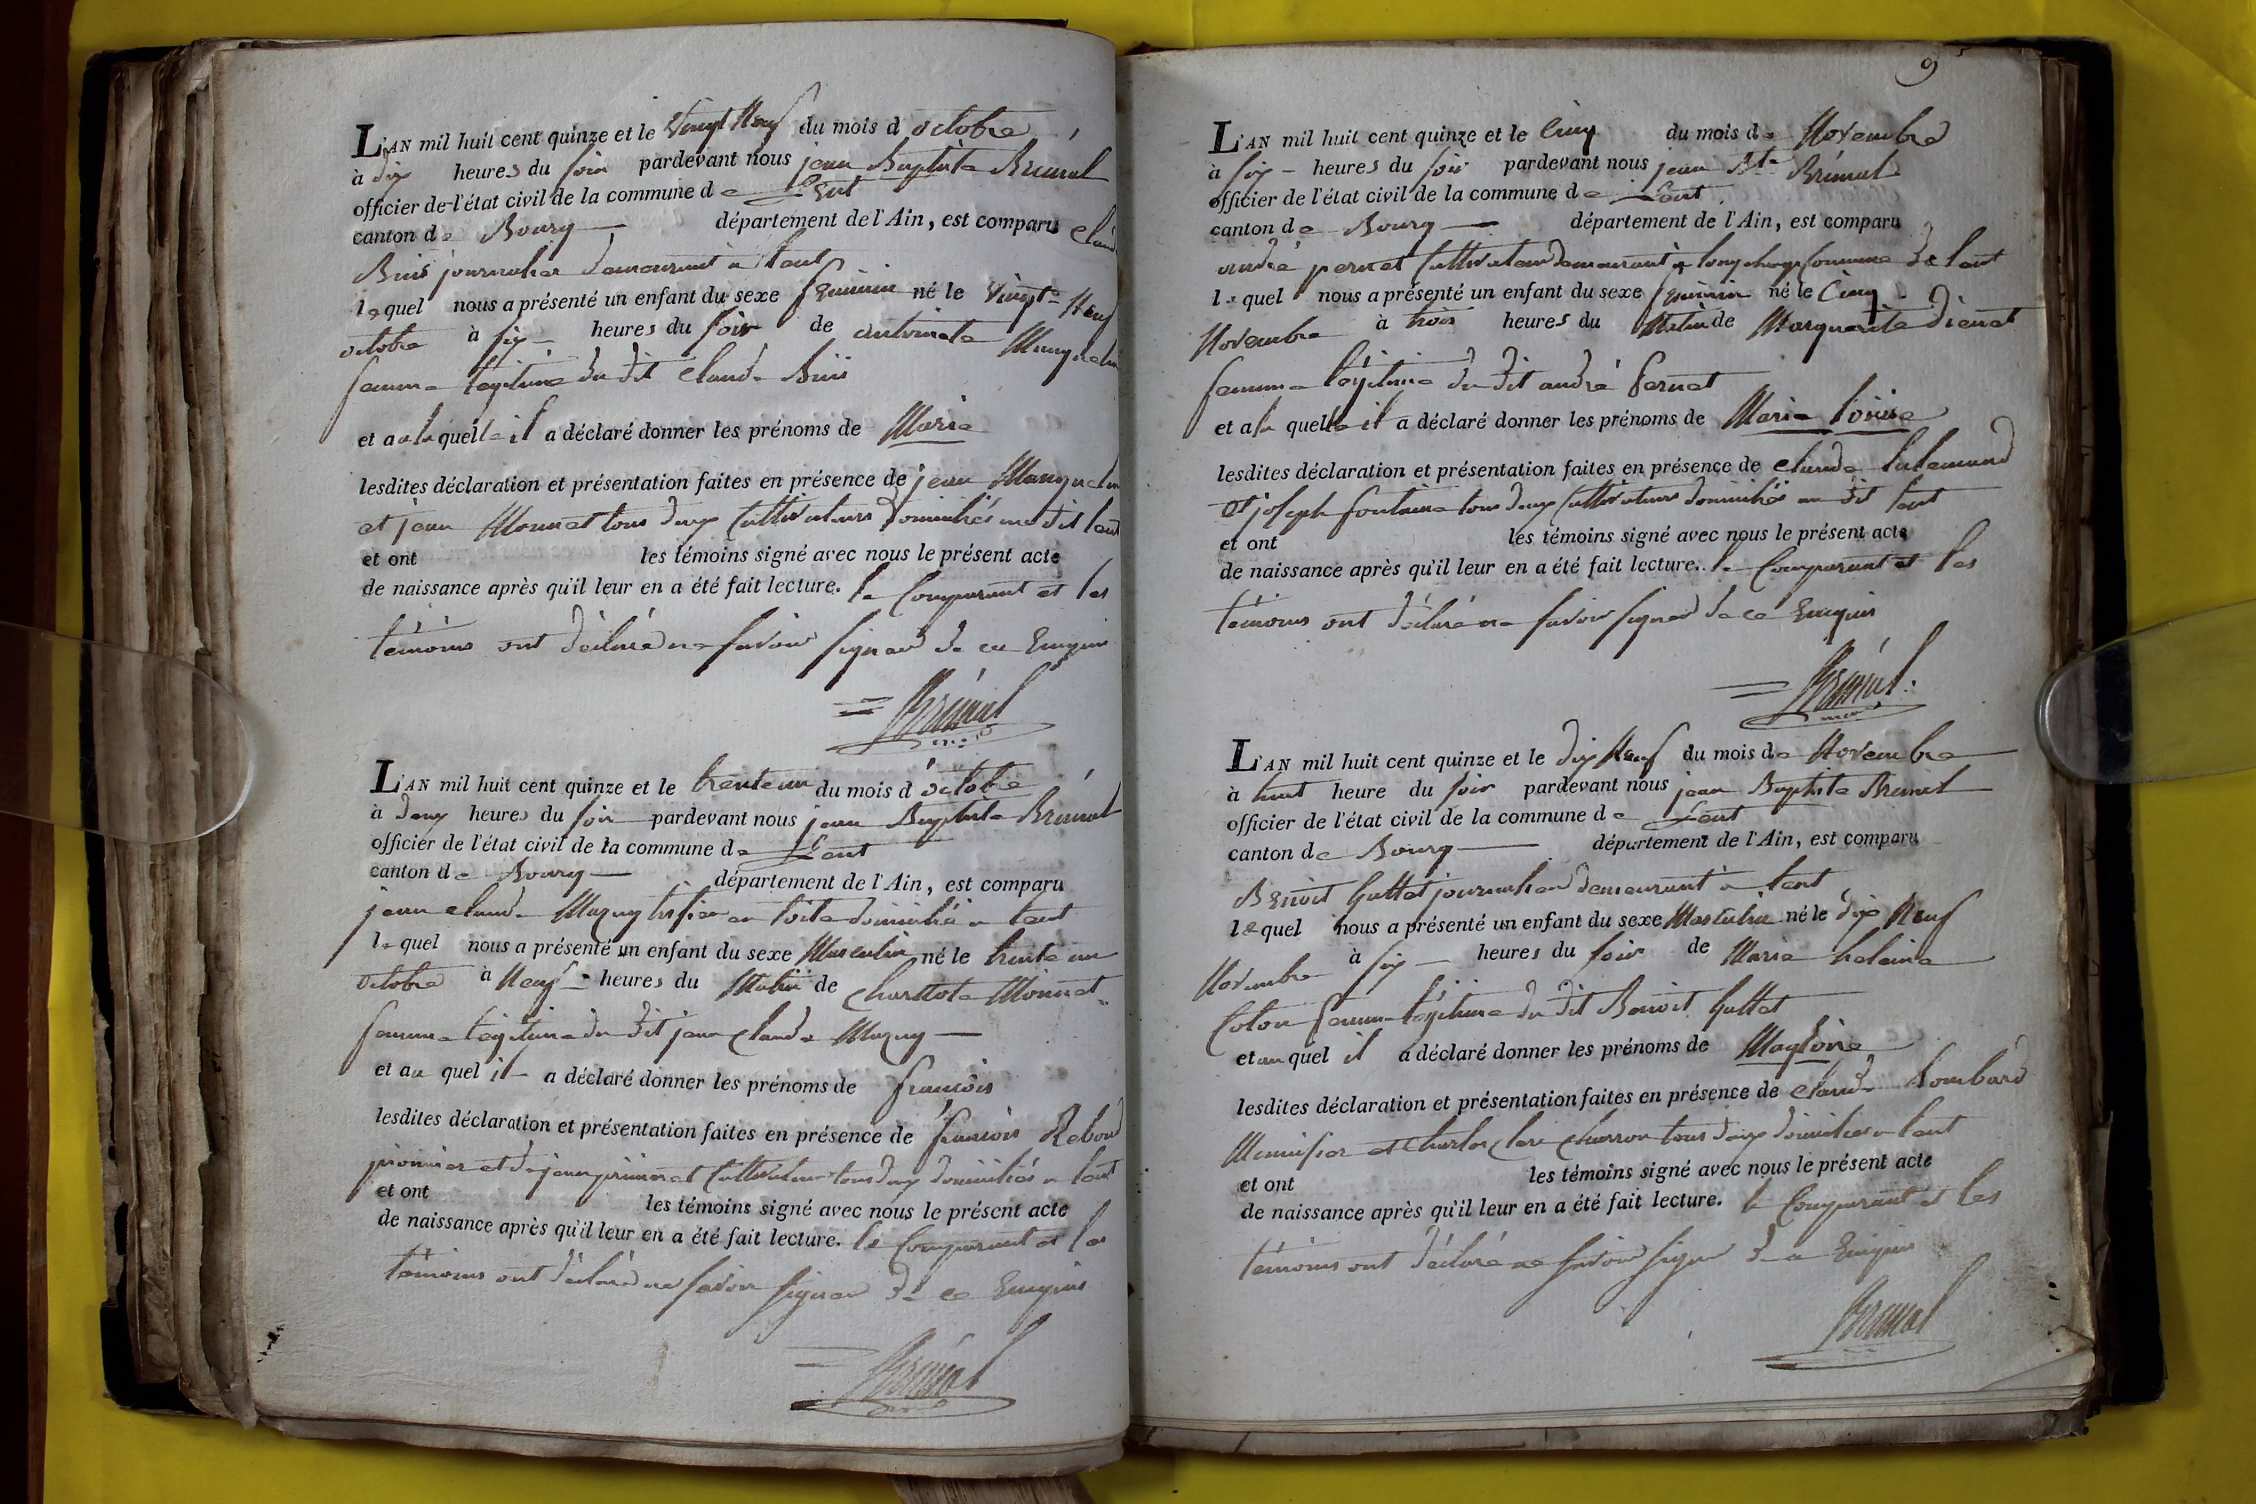 L'AN mil huit cent quinze et le Vingt Neuf du mois d'octobre
à dix heures du soir pardevant nous jean Baptiste Brémal
officier de l'état civil de la commune de Lent
canton de Bourg département de l'Ain, est comparu Claude
Buis journalier demeurant à Lent
lequel nous a présenté un enfant du sexe feminin né le Vingt Neuf
octobre à six heures du soir de antoinete
femme légitime du dit Claude Buis
et a laquelle il a déclaré donner les prénoms de Marie
lesdites déclaration et présentation faites en présence de jean
et jean Monnet tous deux Cultivateurs domiciliés au dit Lent
et ont les témoins signé avec nous le présent acte
de naissance après qu'il leur en a été fait lecture. le Comparant et les
témoins ont déclaré ne savoir signer de ce Enquis
Brémal
L'AN mil huit cent quinze et le trente un du mois d'octobre
à deux heures du soir pardevant nous jean Baptiste Brémal
officier de l'état civil de la commune de Lent
canton de Bourg département de l'Ain, est comparu
jean claude Mazuy tisier en toile domicilié a Lent
lequel nous a présenté un enfant du sexe Masculin né le trente un
octobre à Neuf heures du Matin de Charllote Monnet
femme légitime du dit jean Claude Mazuy
et au quel il a déclaré donner les prénoms de françois
lesdites déclaration et présentation faites en présence de françois Reboud
et de jean Cultivateur tous deux domiciliés a Lent
et ont les témoins signé avec nous le présent acte
de naissance après qu'il leur en a été fait lecture. le Comparant et les
témoins ont déclaré ne savoir signer de ce Enquis
Brémal
9
L'AN mil huit cent quinze et le Cinq du mois de Novembre
à six heures du soir pardevant nous jean Bte Brémal
officier de l'état civil de la commune de Lent
canton de Bourg département de l'Ain, est comparu
andré pernet Cultivateur demeurant à longchamp Commune de Lent
lequel nous a présenté un enfant du sexe feminin né le Cinq
Novembre à trois heures du Matin de Marguerite
femme légitime du dit andré pernet
et a la quelle il a déclaré donner les prénoms de Marie louise
lesdites déclaration et présentation faites en présence de claude lalemand
et joseph fontaine tous deux Cultivateurs domiciliés au dit Lent
et ont les témoins signé avec nous le présent acte
de naissance après qu'il leur en a été fait lecture. le Comparant et les
témoins ont déclaré ne savoir signer de ce Enquis
Brémal
L'AN mil huit cent quinze et le dix Neuf du mois de Novembre
à huit heure du soir pardevant nous jean Baptiste Brémal
officier de l'état civil de la commune de Lent
canton de Bourg département de l'Ain, est comparu
Benoit Guttet journalier demeurant à Lent
lequel nous a présenté un enfant du sexe Masculin né le dix Neuf
Novembre à six heures du soir de Marie helaine
Coton femme légitime du dit Benoit Guttet
et au quel il a déclaré donner les prénoms de Magloire
lesdites déclaration et présentation faites en présence de claude Lombard
Menuisier et Charles Clere charron tous deux domiciliés a Lent
et ont les témoins signé avec nous le présent acte
de naissance après qu'il leur en a été fait lecture. le Comparant et les
témoins ont déclaré ne savoir signer de ce Enquis
Brémal